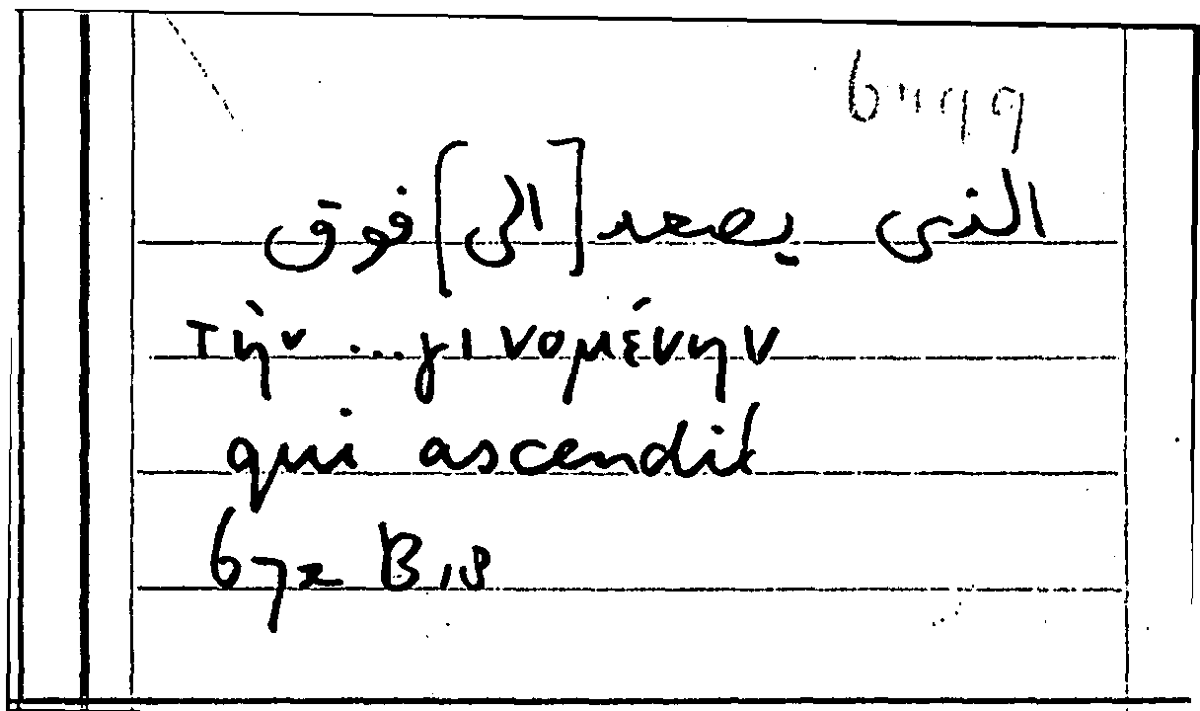 الذى يصعد [الى] فوق
τὴν ... γινομένην
qui ascendit
672 B 18